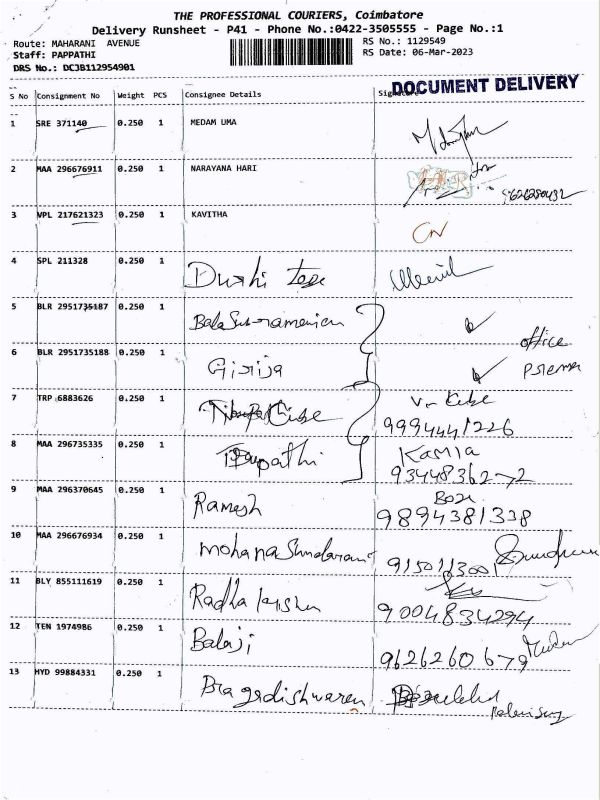 THE PROFESSIONAL COURIERS, Coimbatore
Delivery Runsheet - P41 - Phone No.:0422-3505555 - Page No.:1
Route: MAHARANI AVENUE
Staff: PAPPATHI
DRS No.: DCJB112954901
RS No.: 1129549
RS Date: 06-Mar-2023
DOCUMENT DELIVERY
S No Consignment No Weight PCS Consignee Details Signature
1 SRE 371140 0.250 1 MEDAM UMA
2 MAA 296676911 0.250 1 NARAYANA HARI
3 VPL 217621323 0.250 1 KAVITHA
4 SPL 211328 0.250 1
5 BLR 2951735187 0.250 1 BalaSubramanian office
6 BLR 2951735188 0.250 1 Girija
7 TRP 6883626 0.250 1
9994441226
8 MAA 296735335 0.250 1 Kamla
9344836272
9 MAA 296370645 0.250 1 Ramesh Bose
9894381338
10 MAA 296676934 0.250 1 mohana Sundaram
11 BLY 855111619 0.250 1 Radha krishn
9004834294
12 TEN 1974986 0.250 1 Balaji
9626260679
13 HYD 99884331 0.250 1 Bragadishwaren